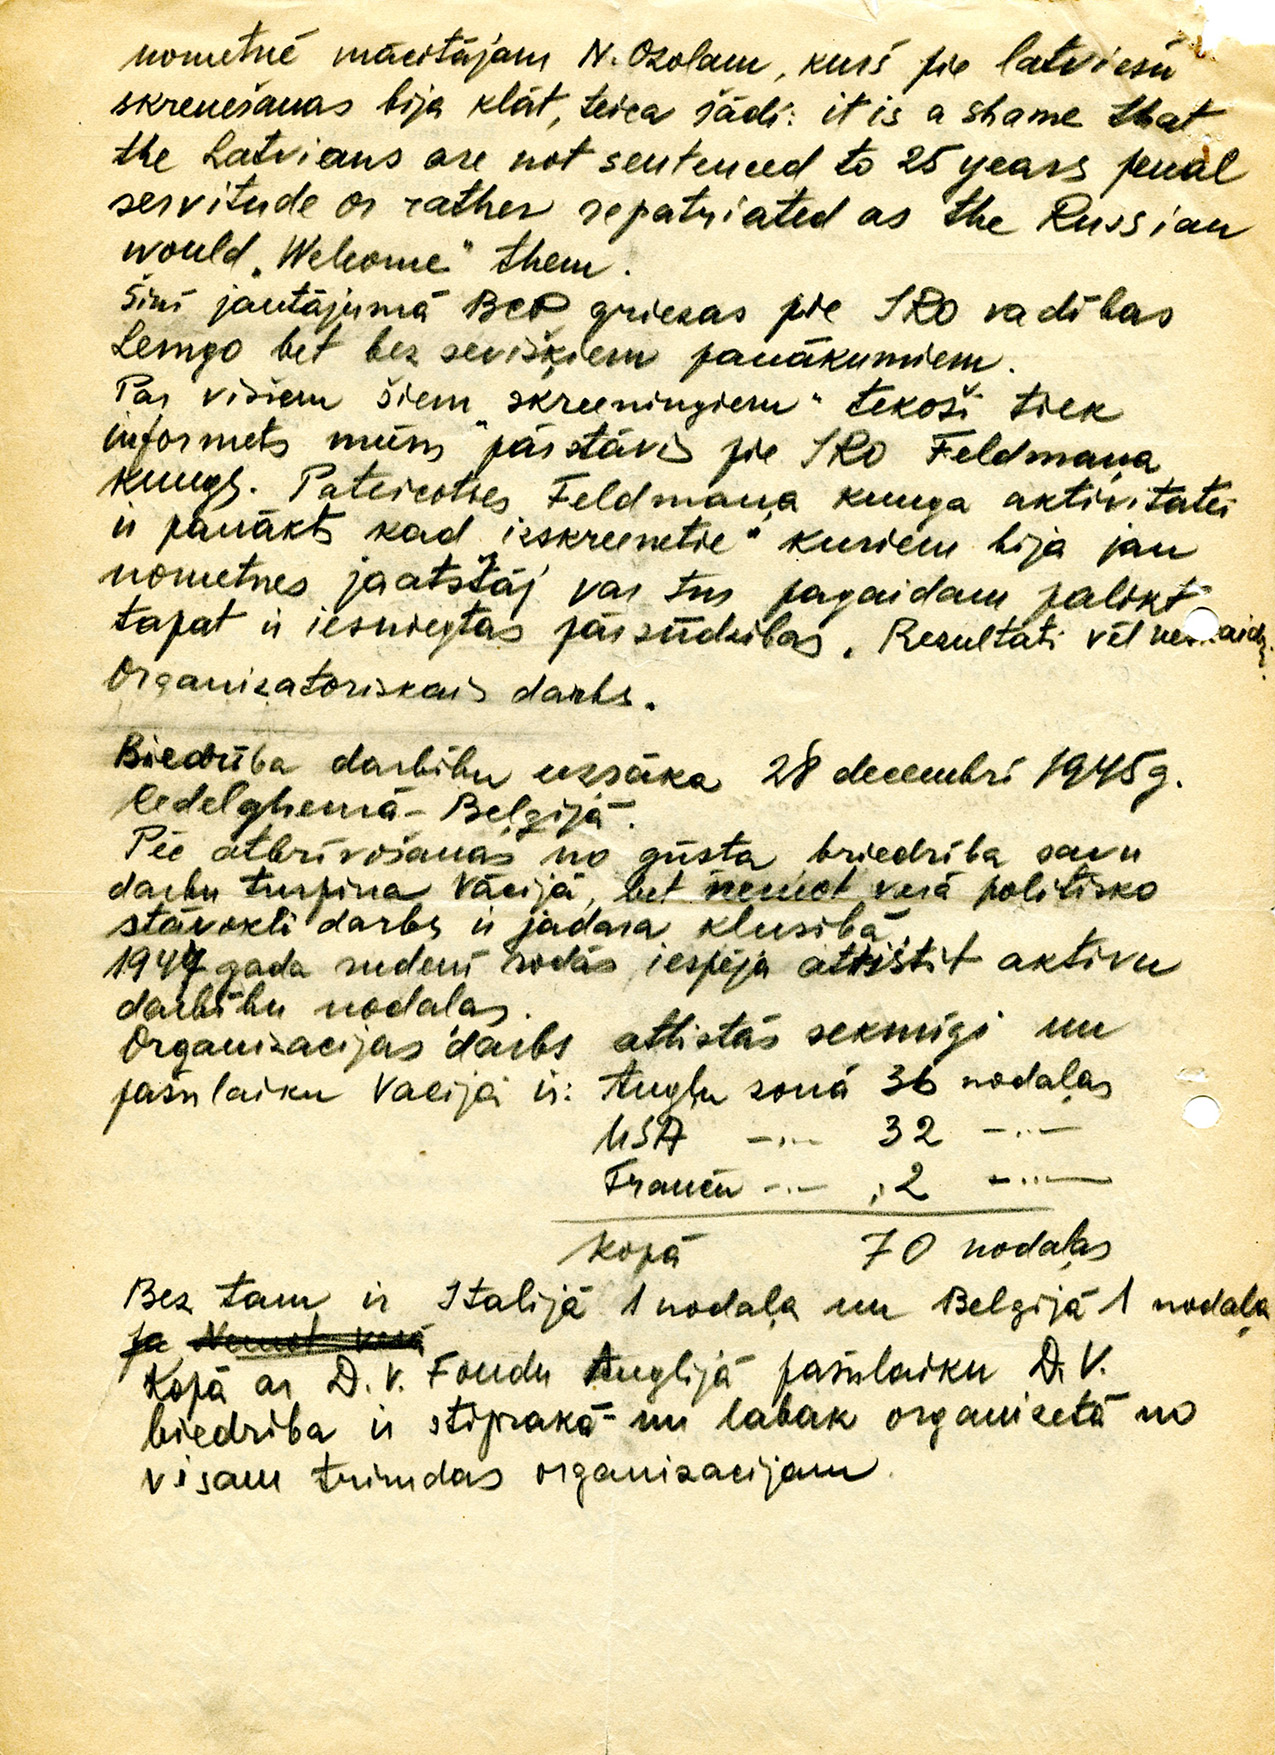 nometnē mācītājam N. Ozolam, kurš pie latviešu
skreenēšanas bija klāt, teica šādi: it is a shame that
the Latvians are not sentenced to 25 years penal
servitude or rather repatriated as the Russian
would „Welcome" them.
Šinī jautājumā BCP griezas pie IRO vadības
Lemgo bet bez sevišķiem panākumiem.
Par visiem šiem „skreeningiem" tekoši tiek
informets mūsu pārstāvis pie IRO Feldmaņa
kungs. Pateicoties Feldmaņa kunga aktivitātei
ir panākts kad „izskreenetie" kuriem bija jau
nometnes jaatstāj var tur pagaidam palikt
tapat ir iesniegtas pārsūdzibas. Rezultati vēl
Organizatoriskais darbs.
Biedrība darbību uzsāka 28 decembrī 1945g.
Cedelghemā - Beļgijā.
Pēc atbrīvošanas no gūsta briedrība savu
darbu turpina Vācijā, bet ņemot vērā politisko
stāvokli darbs ir jādara klusibā.
194 gada rudenī rodās iespēja attīstit aktivu
darbību nodaļas.
Organizacijas darbs attistās sekmīgi un
pašulaiku Vacijā ir: Angļu zonā 36 nodaļas
USA -..- 32 -..-
Franču -..- 2 -..-
Kopā 70 nodaļas
Bez tam ir Italijā 1 nodaļa un Belgijā 1 nodaļa
Ja Ņemot verā
Kopā ar D.V. Fondu Anglijā pašulaiku D.V.
biedriba ir stiprakā un labak organizetā no
visam trimdas organizacijam.